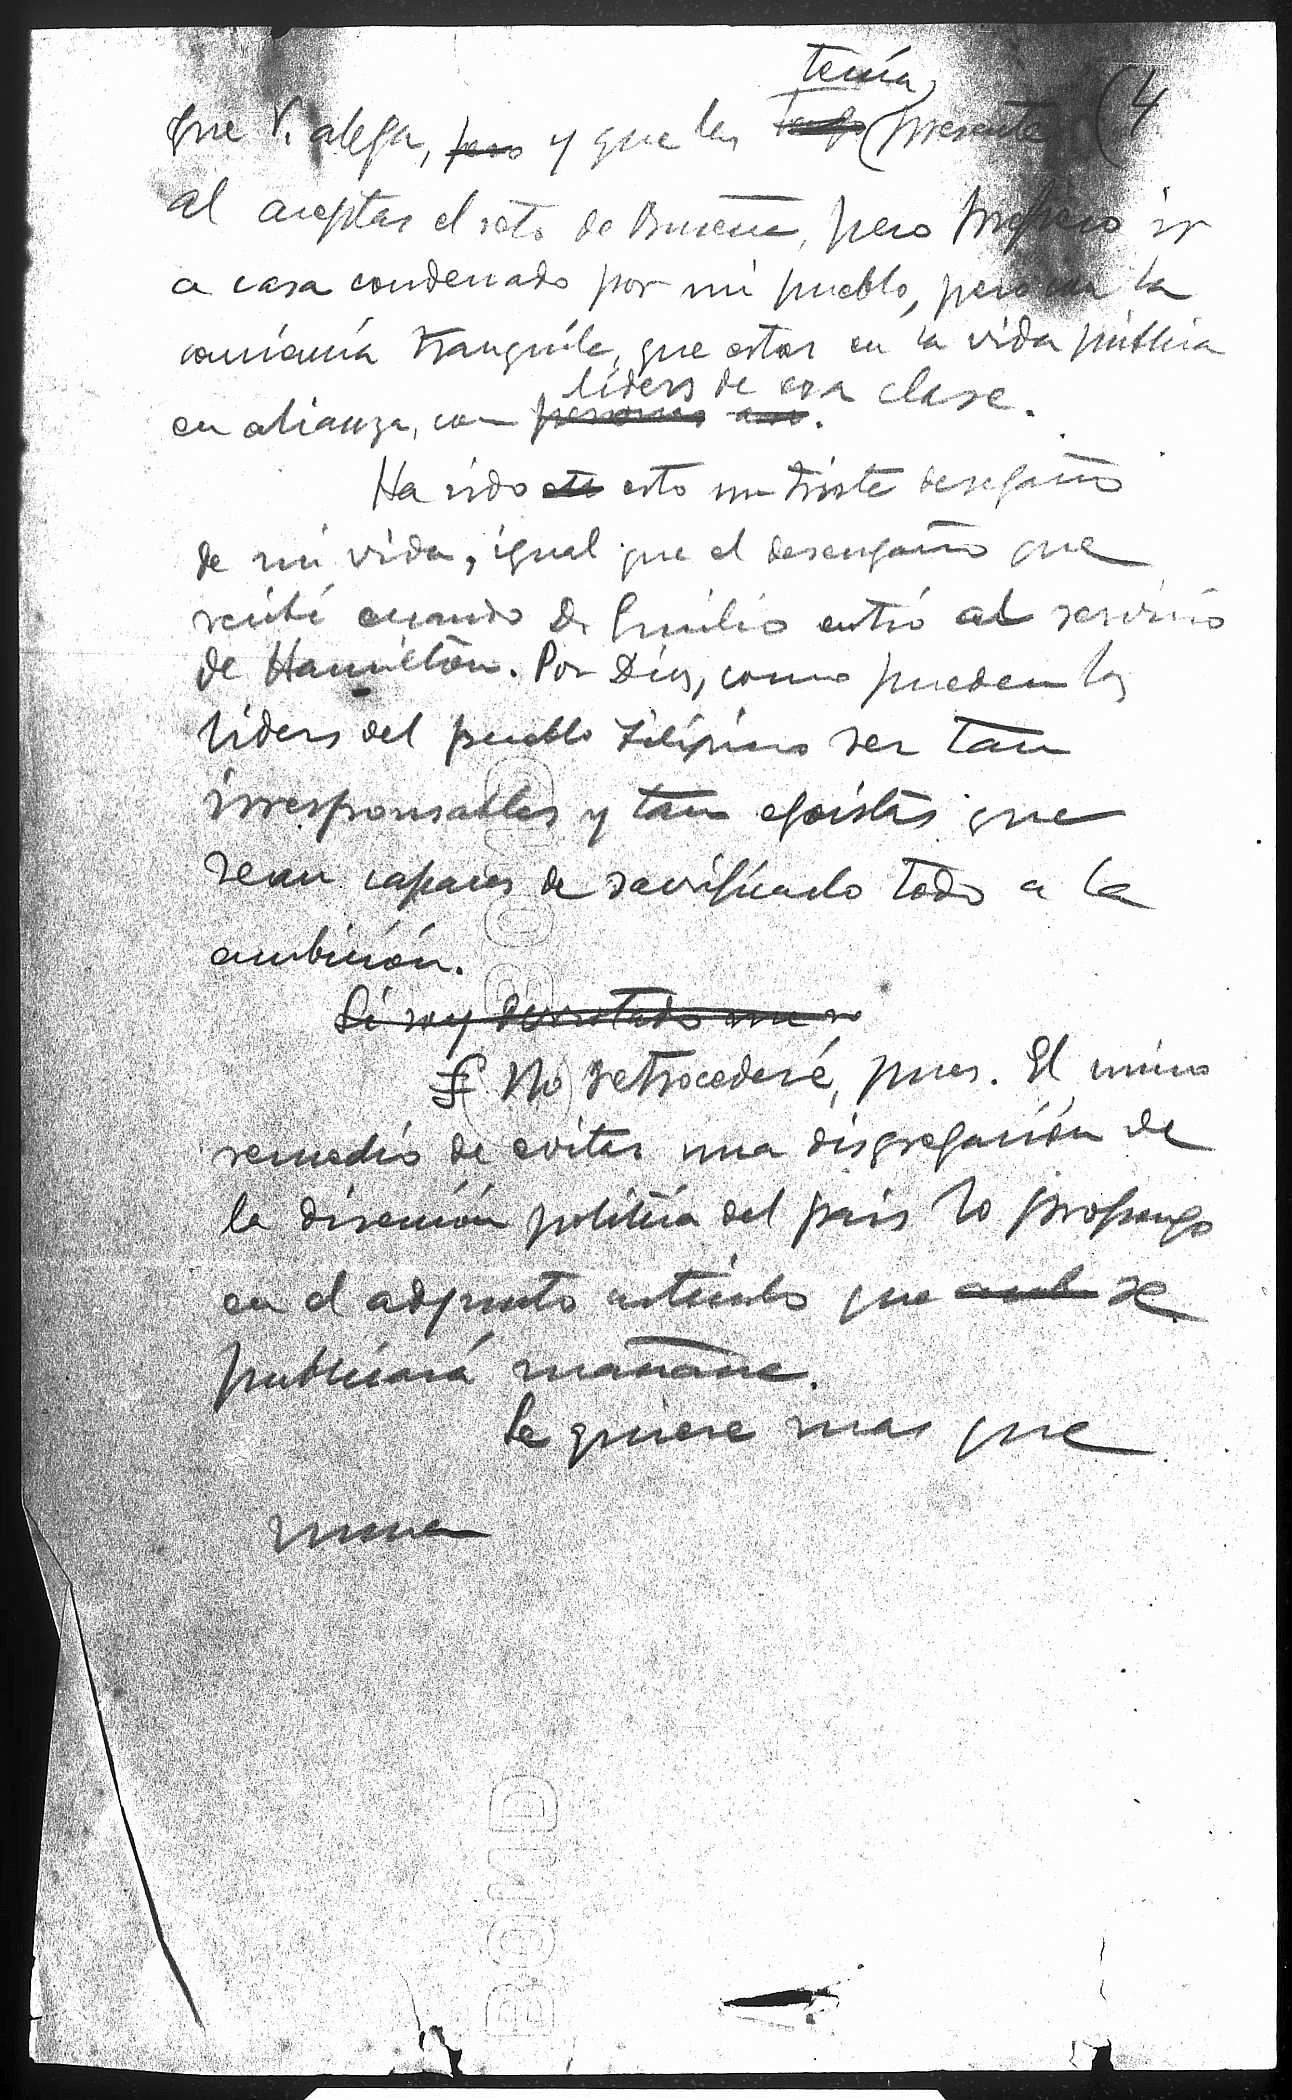 (4
tenía
que V. alega, pero y que las tengo presente
al aceptar el reto de Buencamino, pero prefiero ir
a casa condenado por mi pueblo, pero con la
conciencia tranquila, que estar en la vida pública
líders de esa clase.
en alianza, con personas
Ha sido esto un triste desengaño
de mi vida, igual que el desengaño que
recibí cuando D. Emilio entró al servicio
de Hamilton. Por Dios, como pueden los
líders del pueblo Filipino ser tan
irresponsables y tan egoistas que
sean capaces de sacrificarlo todo a la
ambición.
Si soy derrotado
No retrocederé, pues. El único
remedio de evitar una disgregación de
la dirección política del pais lo propongo
en el adjunto artículo que se
publicará mañana.
Le quiere mas que
nunca
BOND
BOND